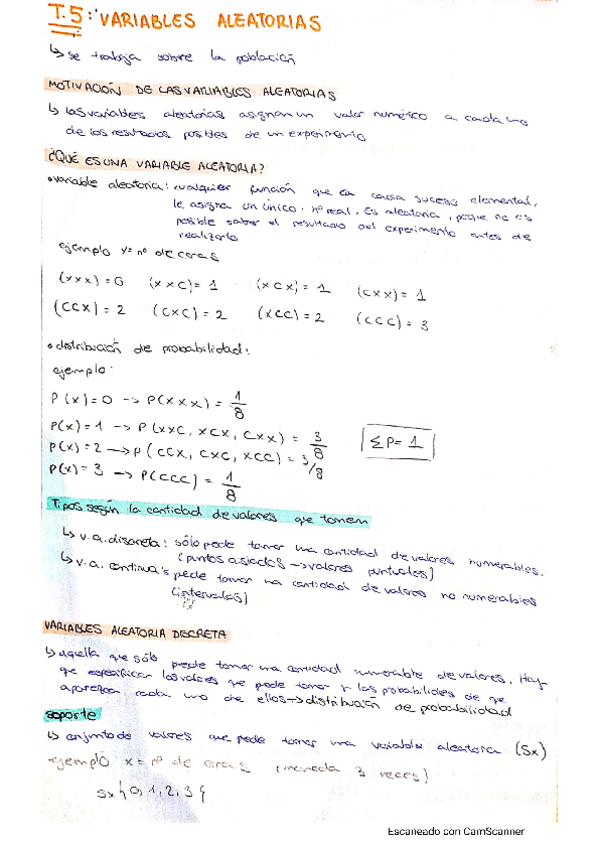 T.5: VARIABLES ALEATORIAS
↳ se trabaja sobre la población
MOTIVACIÓN DE LAS VARIABLES ALEATORIAS
↳ las variables aleatorias asignan un valor numérico a cada uno
de los resultados posibles de un experimento
¿QUÉ ES UNA VARIABLE ALEATORIA?
• variable aleatoria: cualquier función que en cada suceso elemental,
le asigna un único nº real. Es aleatoria, porque no es
posible saber el resultado del experimento antes de
realizarlo
ejemplo nº de caras
(xxx) = 0 (xxc) = 1 (xcx) = 1 (cxx) = 1
(ccx) = 2 (cxc) = 2 (xcc) = 2 (ccc) = 3
• distribución de probabilidad:
ejemplo:
P(x)=0 -> P(xxx) = 1/8
P(x)=1 -> P(xxc, xcx, cxx) = 3/8
ΣP= 1
P(x)=2 -> P(ccx, cxc, xcc) = 3/8
P(x)=3 -> P(ccc) = 1/8
Tipos según la cantidad de valores que tomen
↳ v.a. discreta: sólo puede tomar una cantidad de valores numerables.
(puntos aislados -> valores puntuales)
↳ v.a. continua: puede tomar una cantidad de valores no numerables
(intervalos)
VARIABLES ALEATORIA DISCRETA
↳ aquella que sólo puede tomar una cantidad numerable de valores. Hay
que especificar los valores que puede tomar y las probabilidades de que
aparezca cada uno de ellos -> distribución de probabilidad
soporte
↳ conjunto de valores que puede tomar una variable aleatoria (Sx)
ejemplo x = nº de caras (moneda 3 veces)
Sx { 0, 1, 2, 3 }
Escaneado con CamScanner